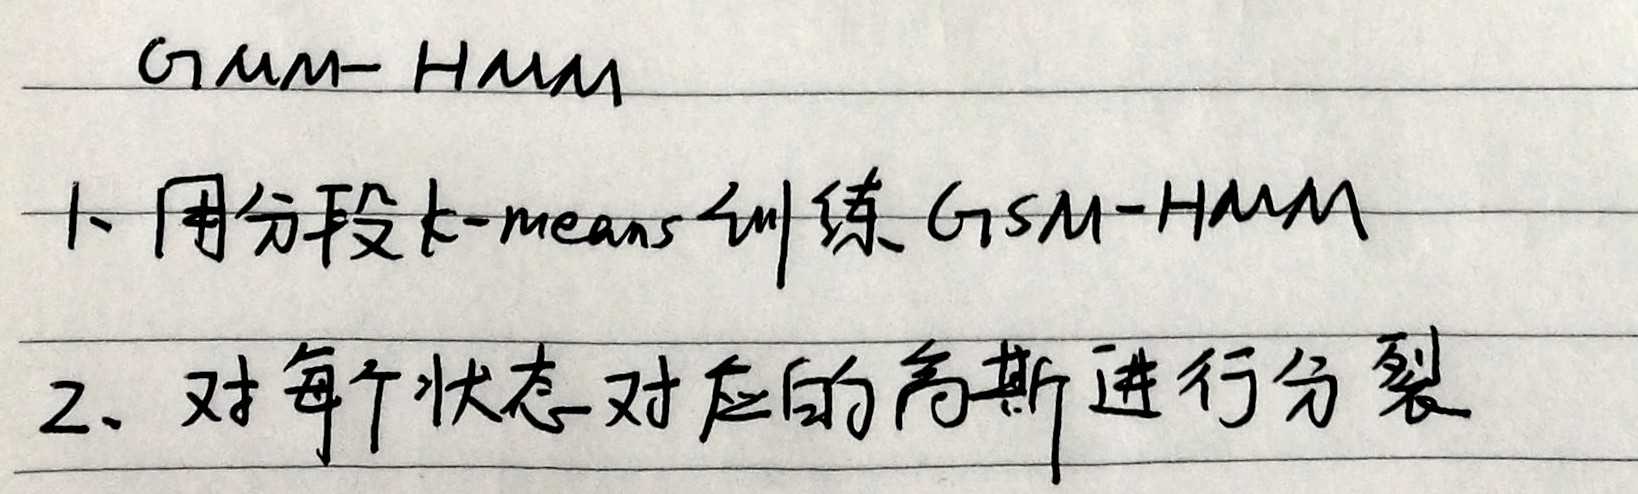 GMM-HMM
1、用分段k-means训练GSM-HMM
2、对每个状态对应的高斯进行分裂